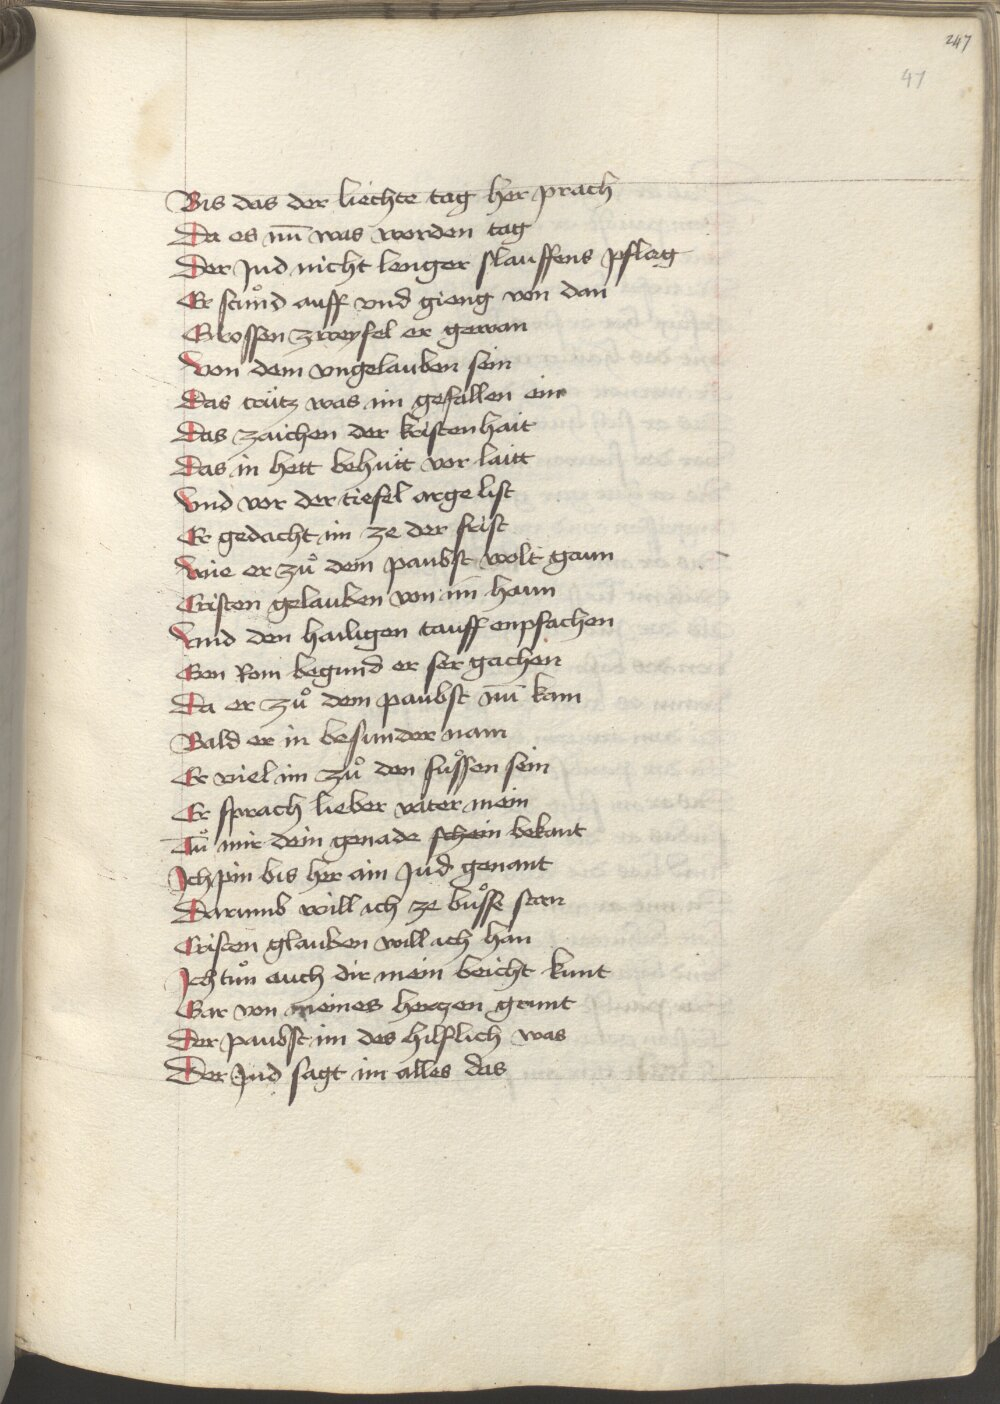 247
47
Bis das der liechte tag her prach
Da es nū was worden tag
Der Jud nicht lenger slauffens pflag
Er stůnd auff vnd gieng von dan
Grossen zweyfel er gewan
Von dem vngelauben sein
Das crütz was im gefallen ein
Das zaichen der kristenhait
Das in hett behütt vor laitt
Vnd vor der tiefel arge list
Er gedacht im ze der frist
Wie er zů dem paubst wolt gaun
Cristen gelauben von im haun
Vnd den hailigen tauff enpfachen
Gen Rom begund er ser gachen
Da er zů dem paubst nū kam
Bald er in besunder nam
Er viel im zů den fůssen sein
Er sprach lieber vater mein
Tů mir dein genade schein bekant
Ich pin bis her ain Jud genant
Darumb will ich ze bůsse stan
Cristen glauben will ich han
Ich tůn auch dir mein beicht kunt
Gar von meines herczen grunt
Der paubst im des hilflich was
Der Jud sagt im alles das